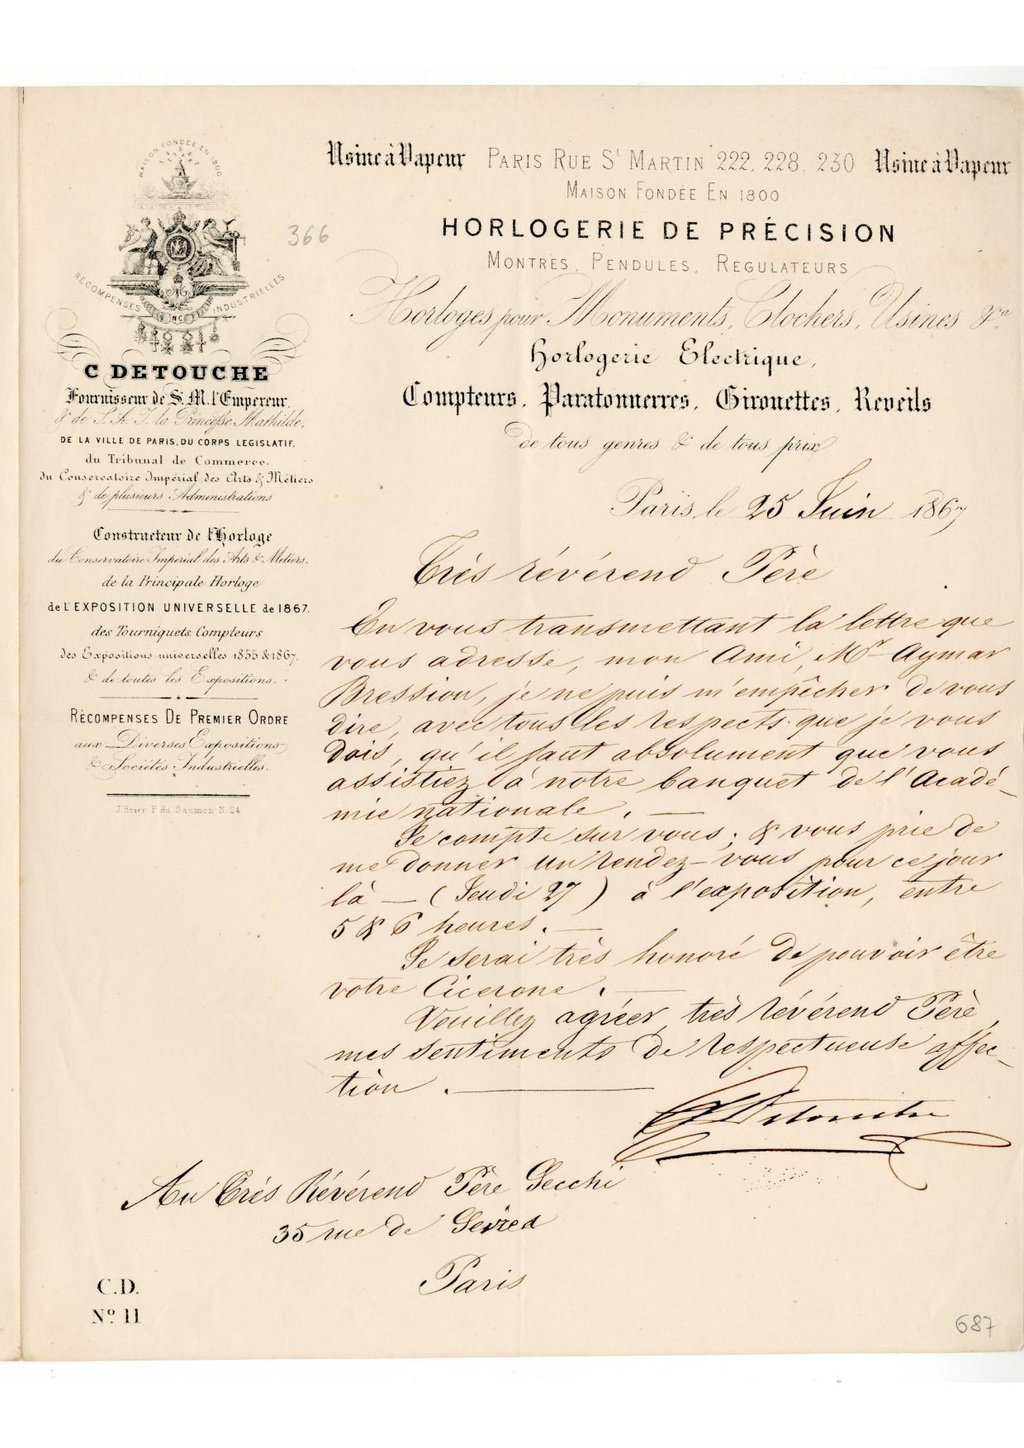 MAISON FONDÉE EN 1800
RÉCOMPENSES INDUSTRIELLES
C DETOUCHE
Fournisseur de S. M. l'Empereur,
& de S. A. I. la Princesse Mathilde,
DE LA VILLE DE PARIS, DU CORPS LEGISLATIF,
du Tribunal de Commerce,
du Conservatoire Impérial des Arts & Métiers
& de plusieurs Administrations
Constructeur de l'Horloge
du Conservatoire Impérial des Arts & Métiers.
de la Principale Horloge
de L'EXPOSITION UNIVERSELLE de 1867.
des Tourniquets Compteurs
des Expositions universelles 1855 & 1867
& de toutes les Expositions.
RÉCOMPENSES DE PREMIER ORDRE
aux Diverses Expositions
& Sociétés Industrielles.
366
Usine à Vapeur PARIS RUE St MARTIN 222, 228, 230 Usine à Vapeur
MAISON FONDÉE EN 1800
HORLOGERIE DE PRÉCISION
MONTRES, PENDULES, REGULATEURS
Horloges pour Monuments, Clochers, Usines &a
Horlogerie Electrique,
Compteurs, Paratonnerres, Girouettes, Reveils
de tous genres & de tous prix
Paris, le 25 Juin 1867
Très révérend Père
En vous transmettant la lettre que
vous adresse, mon Ami, Mr Aymar
Bression, je ne puis m'empêcher de vous
dire, avec tous les respects que je vous
dois, qu'il faut absolument que vous
assistiez à notre banquet de l'Acadé-
mie nationale. —
Je compte sur vous; & vous prie de
me donner un rendez-vous pour ce jour
là — (Jeudi 27) à l'exposition, entre
5 & 6 heures. —
Je serai très honoré de pouvoir être
votre Cicerone. —
Veuillez agréer, très révérend Père,
mes sentiments de respectueuse affec-
tion. —
C Detouche
Au Très Révérend Père Secchi
35 rue de Sèvres
Paris
C.D.
No 11
687